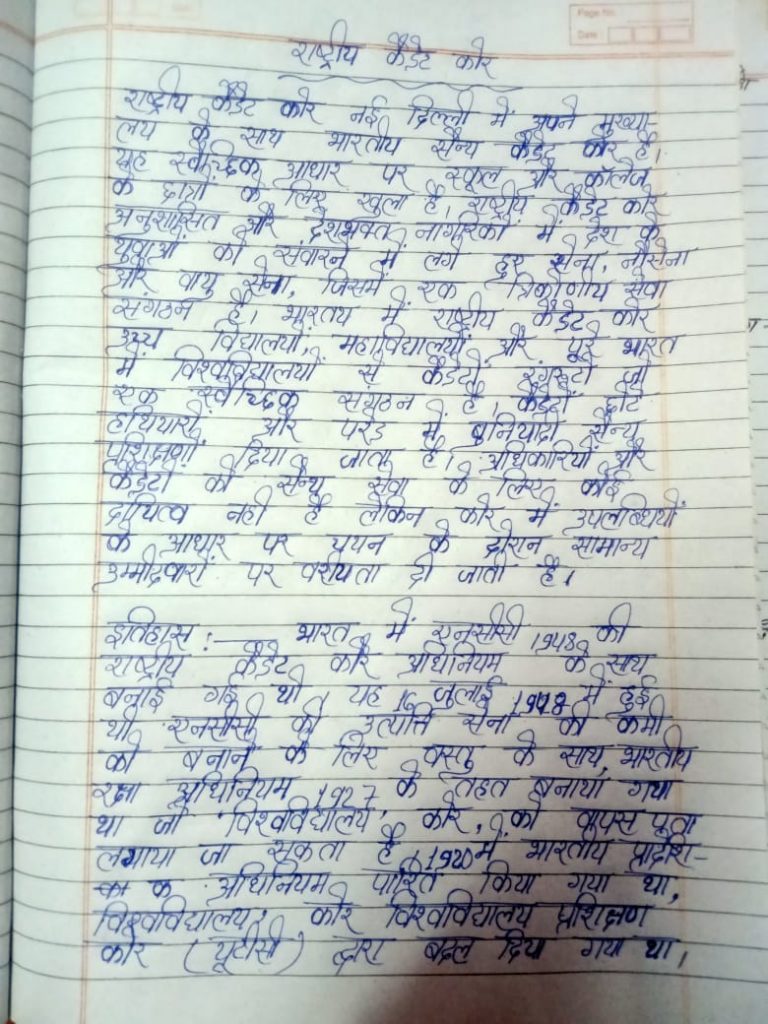 Page No.
Date
राष्ट्रीय कैडेट कोर
राष्ट्रीय कैडेट कोर नई दिल्ली में अपने मुख्या-
लय के साथ भारतीय सैन्य कैडेट कोर है।
यह स्वैच्छिक आधार पर स्कूल और कॉलेज
के छात्रों के लिए खुला है, राष्ट्रीय कैडेट कोर
अनुशासित और देशभक्त नागरिकों में देश के
युवाओं को संवारने में लगे हुए सेना, नौसेना
और वायु सेना, जिसमें एक त्रिकोणीय सेवा
संगठन है। भारतय में राष्ट्रीय कैडेट कोर
उच्च विद्यालयों, महाविद्यालयों और पूरे भारत
में विश्वविद्यालयों से कैडेटों रंगरूटों जो
एक स्वैच्छिक संगठन है। कैडेटों छोटे
हथियारों और परेड में बुनियादी सैन्य
प्रशिक्षण दिया जाता है। अधिकारियों और
कैडेटों को सैन्य सेवा के लिए कोई
दायित्व नही है लेकिन कोर में उपलब्धियों
के आधार पर चयन के दौरान सामान्य
उम्मीदवारों पर वरीयता दी जाती है।
इतिहास :— भारत में एनसीसी 1948 की
राष्ट्रीय कैडेट कोर अधिनियम के साथ
बनाई गई थी, यह 16 जुलाई 1948 में हुई
थी एनसीसी की उत्पत्ति सेना की कमी
को बनाने के लिए वस्तु के साथ, भारतीय
रक्षा अधिनियम 1927 के तहत बनाया गया
था जो 'विश्वविद्यालय' कोर, को वापस पता
लगाया जा सकता है, 1920 में भारतीय प्रादेशि-
क अधिनियम पारित किया गया था,
विश्वविद्यालय, कोर विश्वविद्यालय प्रशिक्षण
कोर (यूटीसी) द्वारा बदल दिया गया था।